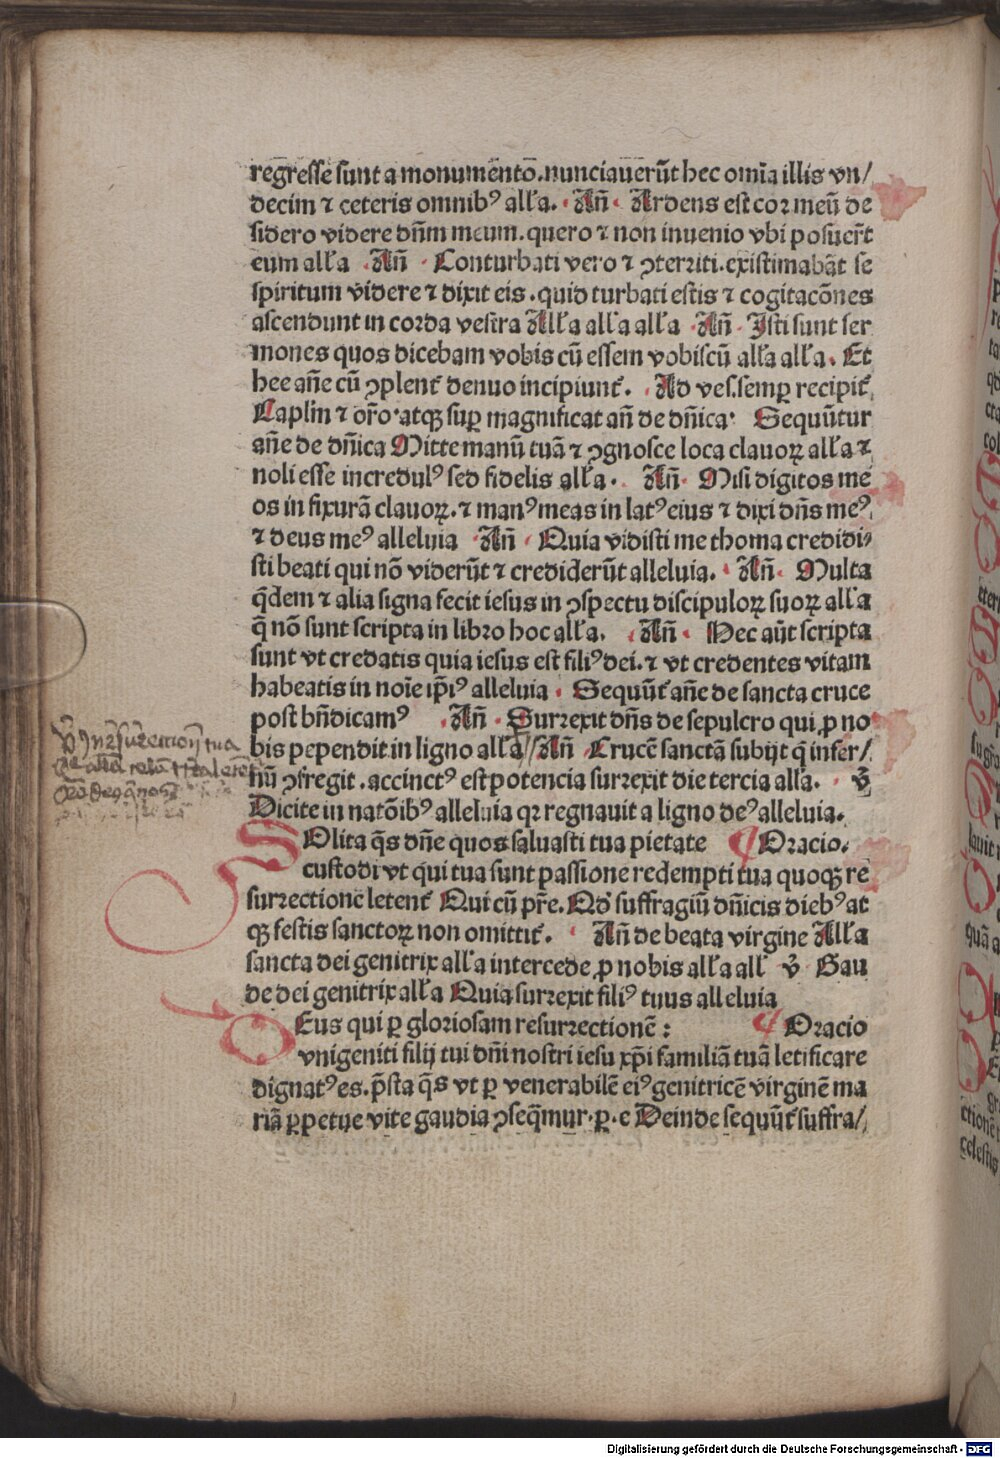 regresse sunt a monumentō. nunciauerūt hec om̄ia illis vn/
decim ⁊ ceteris omnibꝰ all'a. Añ Ardens est cor meū de
sidero videre dn̄m meum. quero ⁊ non inuenio vbi posuer̄t
eum all'a Añ Conturbati vero ⁊ ꝯterriti. existimabāt se
spiritum videre ⁊ dixit eis. quid turbati estis ⁊ cogitacōnes
ascendunt in corda vestra All'a all'a all'a Añ Isti sunt ser
mones quos dicebam vobis cū essem vobiscū all'a all'a. Et
hee an̄e cū ꝯplent᷑ denuo incipiunt᷑. Ad ves. semꝑ recipit᷑
Caplm̄ ⁊ or̄o atqꝫ suꝑ magnificat an̄ de dn̄ica Sequūtur
an̄e de dn̄ica Mitte manū tuā ⁊ ꝯgnosce loca clauoꝝ all'a ⁊
noli esse incredulꝰ sed fidelis all'a. Añ Misi digitos me
os in fixurā clauoꝝ. ⁊ manꝰ meas in latꝰ eius ⁊ dixi dn̄s meꝰ
⁊ deus meꝰ alleluia Añ Quia vidisti me thoma credidi
sti beati qui nō viderūt ⁊ crediderūt alleluia. Añ Multa
q̄dem ⁊ alia signa fecit iesus in ꝯspectu discipuloꝝ suoꝝ all'a
q̄ nō sunt scripta in libro hoc all'a. Añ Hec aūt scripta
sunt vt credatis quia iesus est filiꝰ dei. ⁊ vt credentes vitam
habeatis in noīe ip̄iꝰ alleluia Sequūt᷑ an̄e de sancta cruce
post bn̄dicamꝰ Añ Surrexit dn̄s de sepulcro qui ꝓ no
bis pependit in ligno all'a // Añ Crucē sanctā subijt q̄ infer/
nū ꝯfregit. accinctꝰ est potencia surrexit die tercia alla. ℣
Dicite in natōibꝰ alleluia qꝛ regnauit a ligno deꝰ alleluia.
SOlita q̄s dn̄e quos saluasti tua pietate ¶ Oracio.
custodi vt qui tua sunt passione redempti tua quoqꝫ re
surrectionē letent᷑ Qui cū pr̄e. Qd' suffragiū dn̄icis diebꝰ at
qꝫ festis sanctoꝝ non omittit᷑. Añ de beata virgine All'a
sancta dei genitrix all'a intercede ꝓ nobis all'a all' ℣ Gau
de dei genitrix all'a Quia surrexit filiꝰ tuus alleluia
DEus qui ꝑ gloriosam resurrectionē: ¶ Oracio
vnigeniti filij tui dn̄i nostri iesu xp̄i familiā tuā letificare
dignatꝰ es. p̄sta q̄s vt ꝑ venerabilē eiꝰ genitricē virginē ma
riā ꝑpetue vite gaudia ꝯseq̄mur. ꝑ. e Deinde sequūt᷑ suffra/
Digitalisierung gefördert durch die Deutsche Forschungsgemeinschaft - DFG